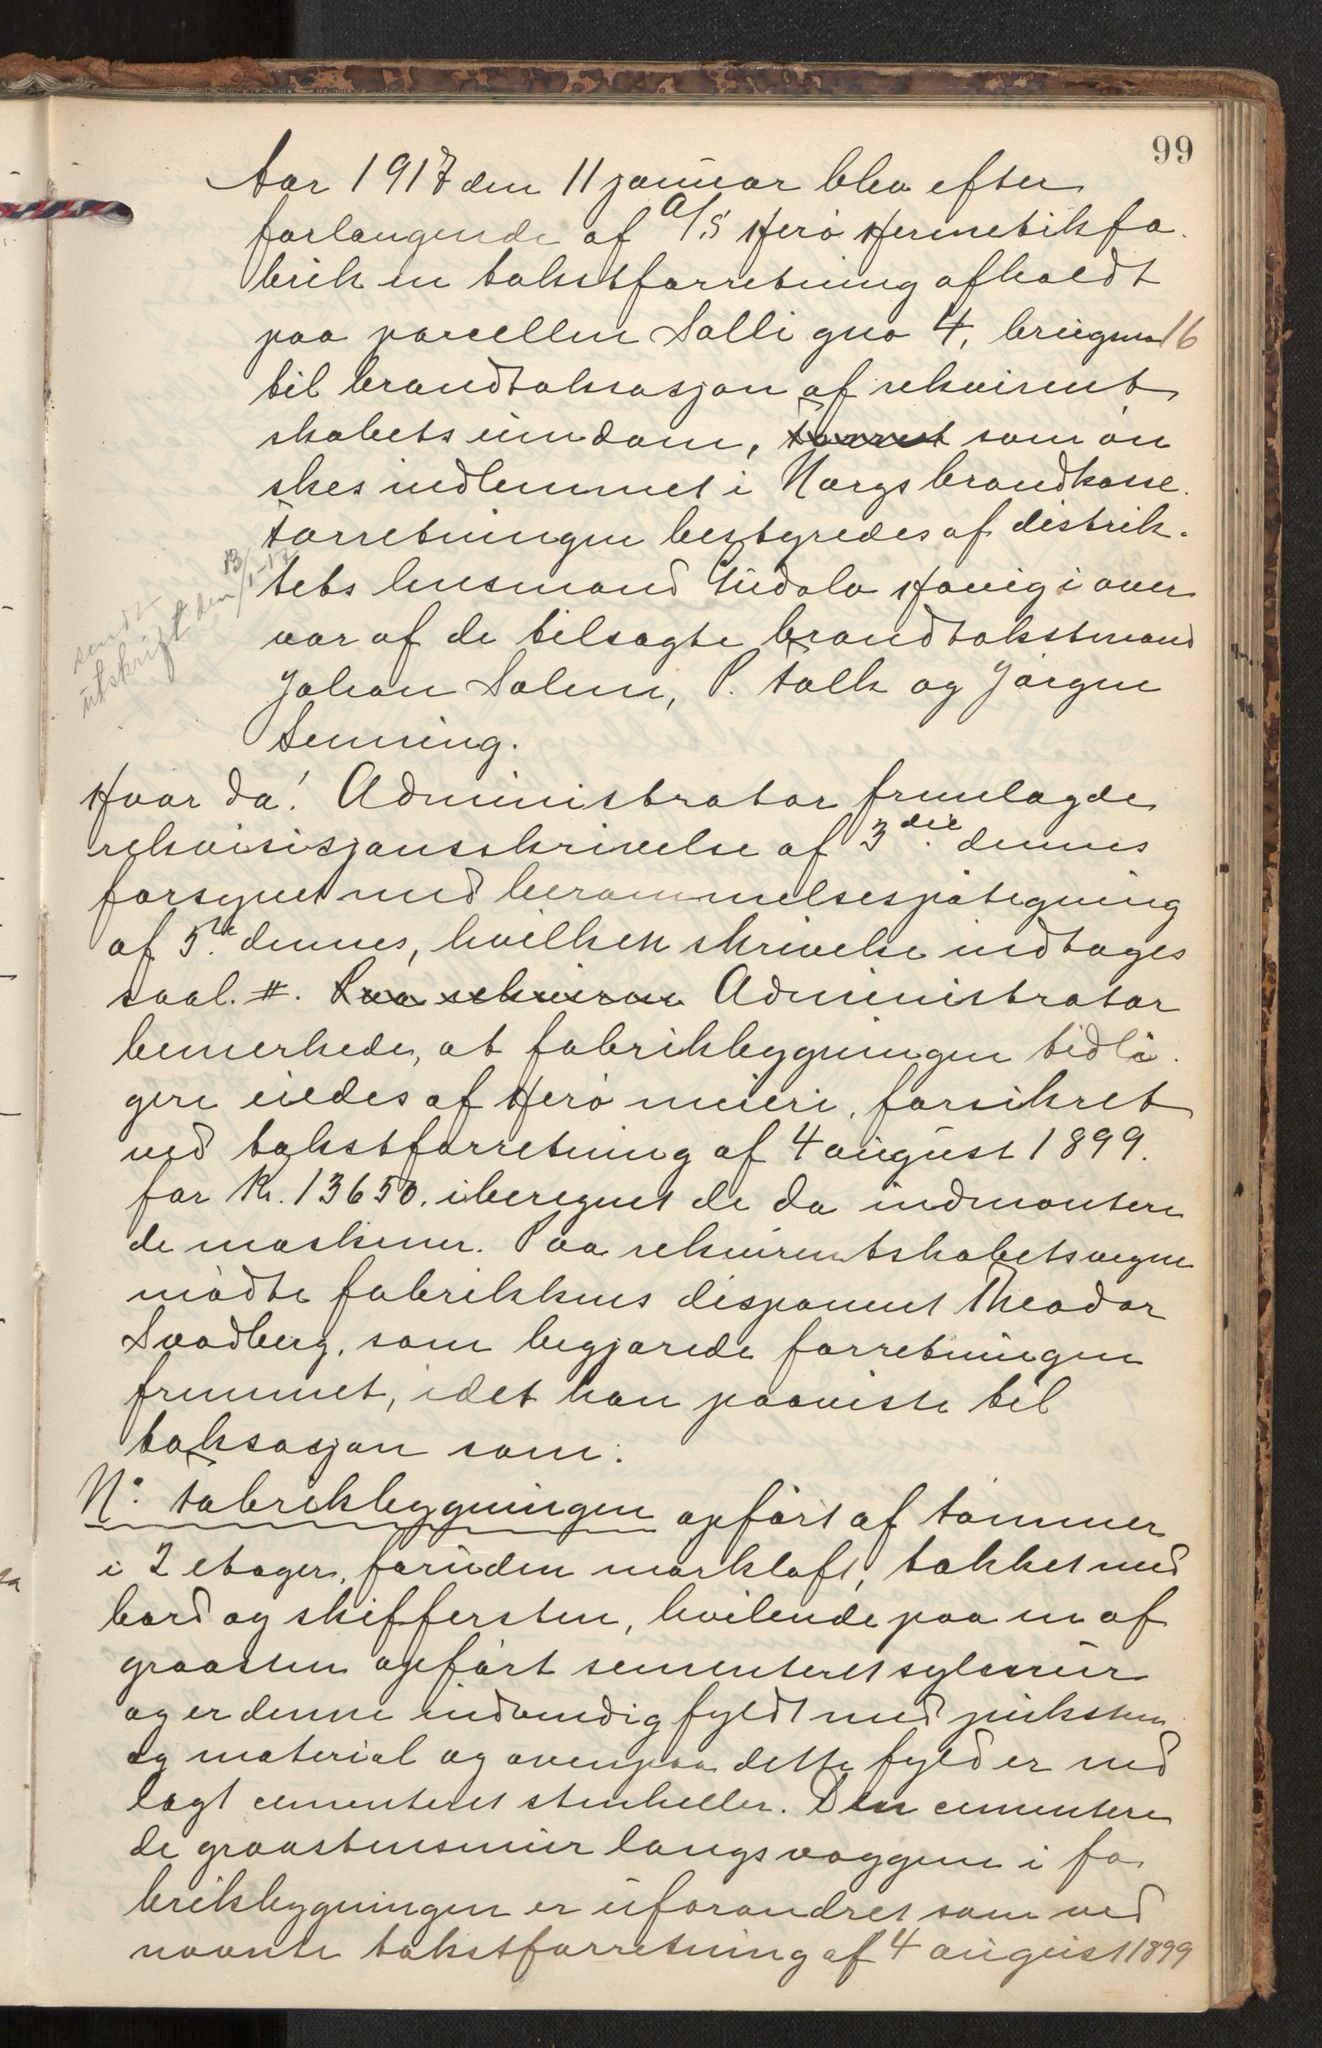 99
Aar 1917 den 11 januar blev efter
forlangende af A/S Herö Hermetikfa-
brik en takstforretning afholdt
paa parcellen Salli gno 4, brugsno 16
til brandtaksasjon af rekvirent
skabets eiendom, Forret som øn
skes indlemmet i Norgs brandkasse.
Forretningen bestyredes af distrik-
tets lensmand Gudolv Hovig i over
vær af de tilsagte brandtakstmænd
Johan Salen, P. Falk og Jørgen
Senning.
sendt
utskrift den 13/1-17
Hvor da! Administrator fremlagde
rekvisisjonsskrivelse af 3die dennes
forsynet med berammelsespåtegning
af 5te dennes, hvilken skrivelse indtages
saal. #. Paa rekvirens Administrator
bemerkede, at fabrikbygningen tidli-
gere eiedes af Herö meieri, forsikret
ved takstforretning af 4 august 1899.
for Kr. 13650. iberegnet de da indmontere
de maskiner. Paa rekvirentskabets vegne
mødte fabrikkens disponent Theodor
Svadberg, som begjærede forretningen
fremmet, idet han paaviste til
taksasjon som:
No. Fabrikbygningen opført af tømmer
i 2 etager, foruden mørkloft, tækket med
bord og skiffersten, hvilende paa en af
graasten opført sementeret sylmur
og er denne indvendig fyldt med puksten
og material og ovenpaa dette fyld er ned
lagt cementeret stenheller. Den cementere
de graastensmur langs væggene i fa
brikbygningen er uforandret som ved
nævnte takstforretning af 4 august 1899